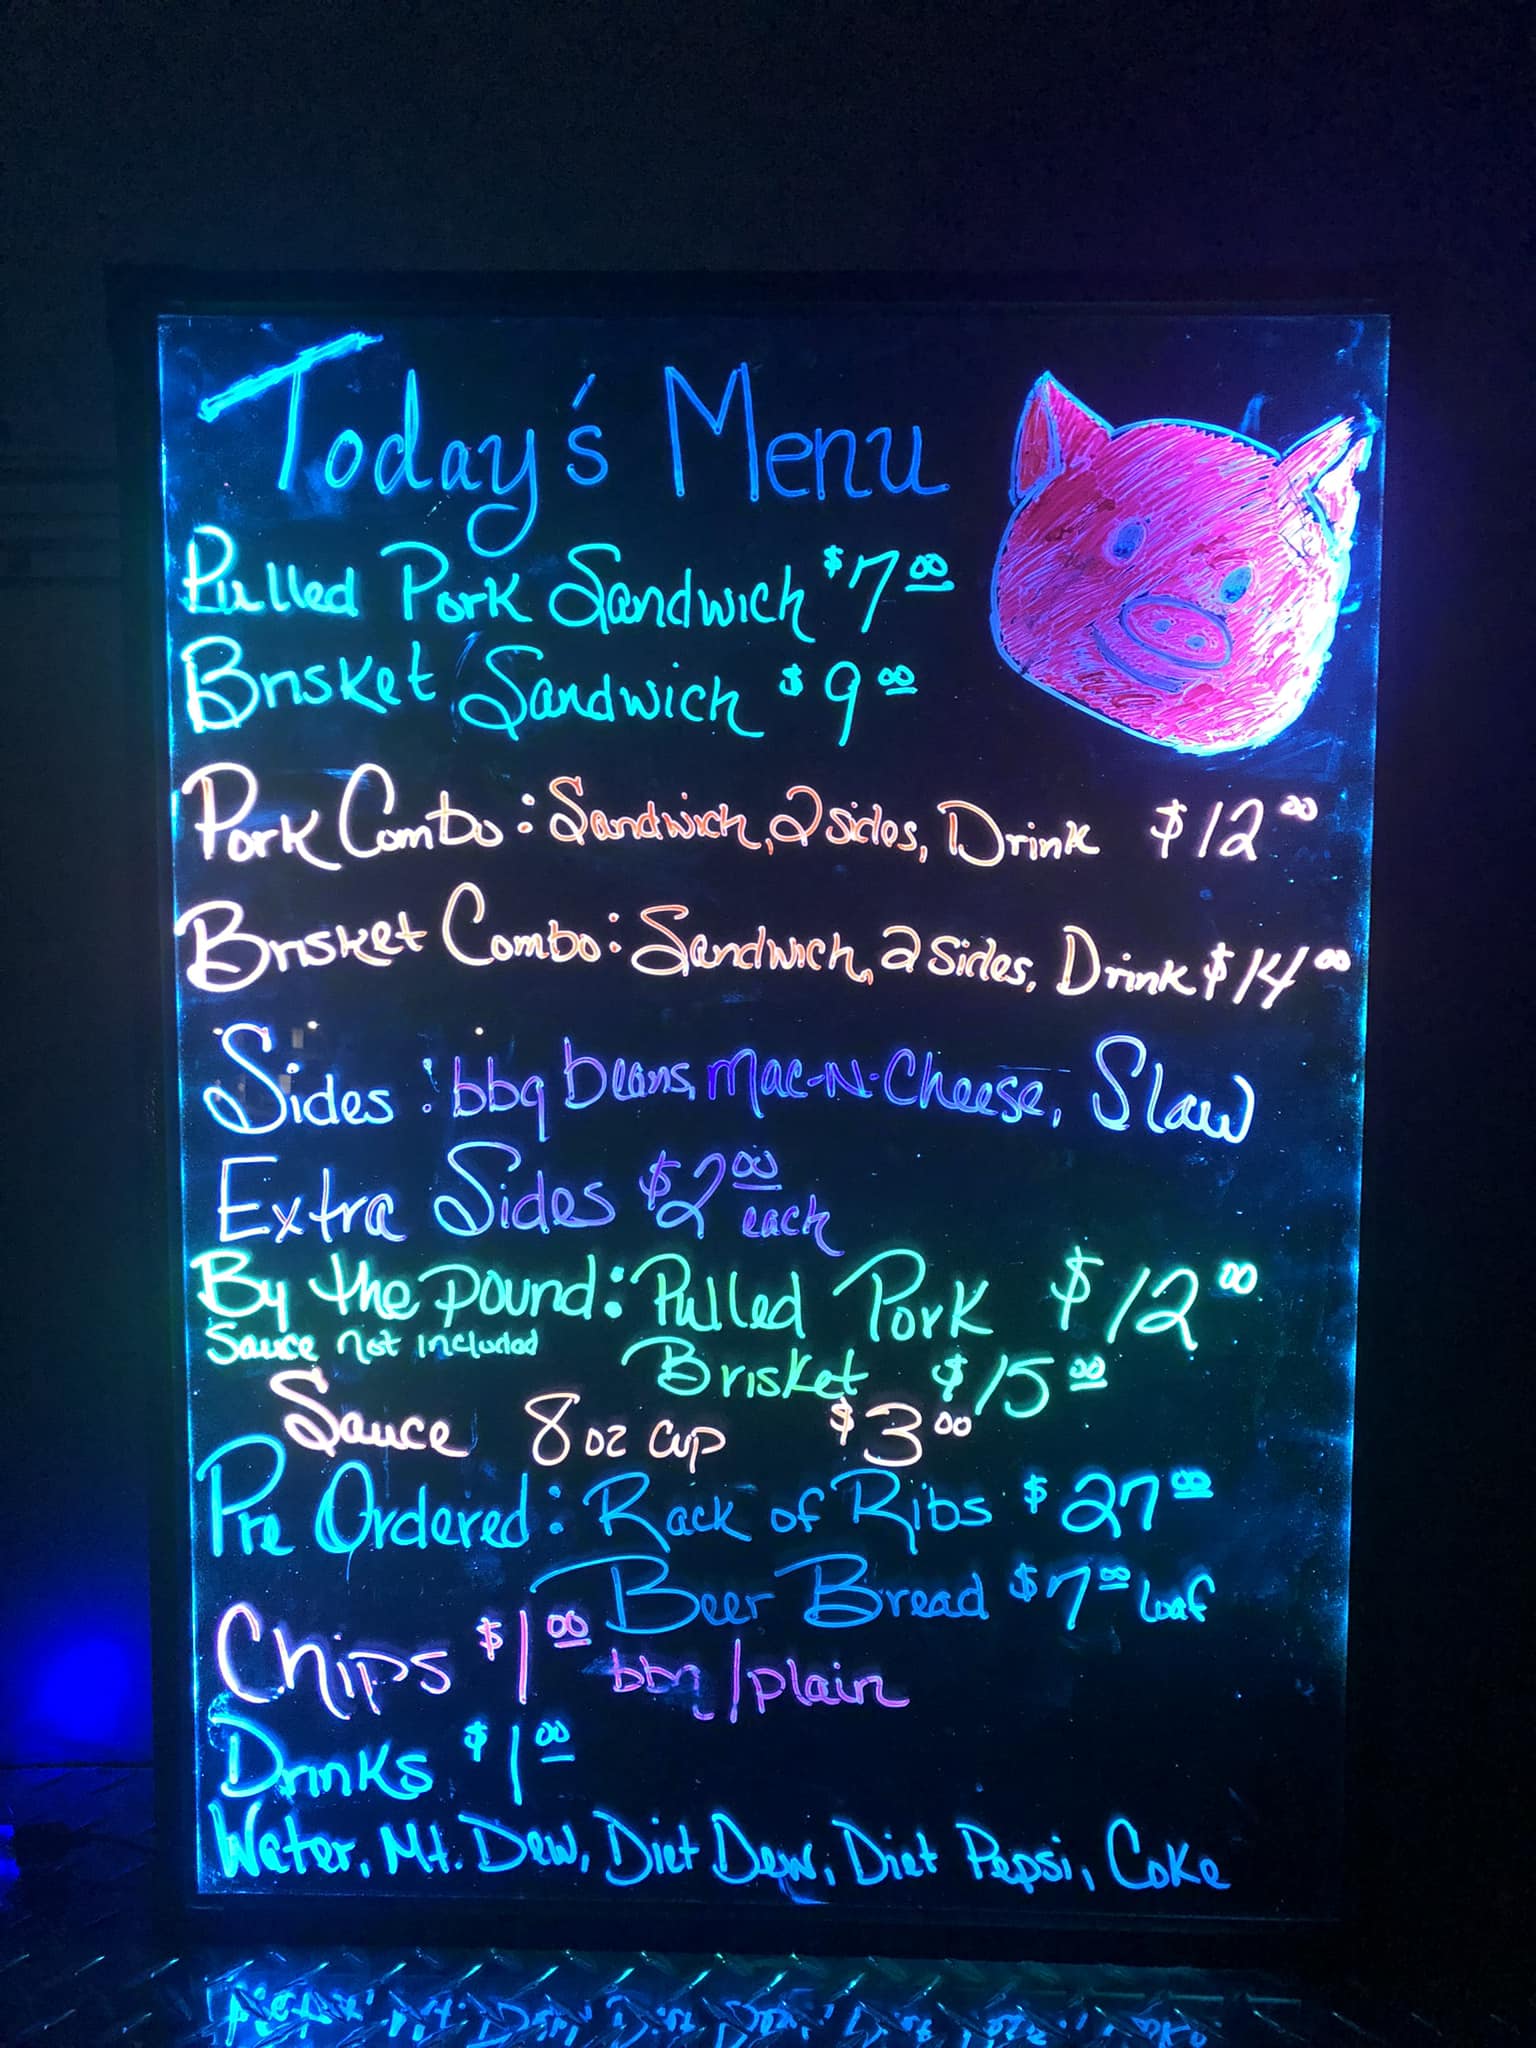 Today's Menu
Pulled Pork Sandwich $7.00
Brisket Sandwich $9.00
Pork Combo: Sandwich, 2 sides, Drink $12.00
Brisket Combo: Sandwich, 2 sides, Drink $14.00
Sides: bbq beans, Mac-N-Cheese, Slaw
Extra Sides $2.00 each
By the pound: Pulled Pork $12.00
Sauce not included
Brisket $15.00
Sauce 8 oz cup $3.00
Pre Ordered: Rack of Ribs $27.00
Beer Bread $7.00 loaf
Chips $1.00 bbq/plain
Drinks $1.00
Water, Mt. Dew, Diet Dew, Diet Pepsi, Coke